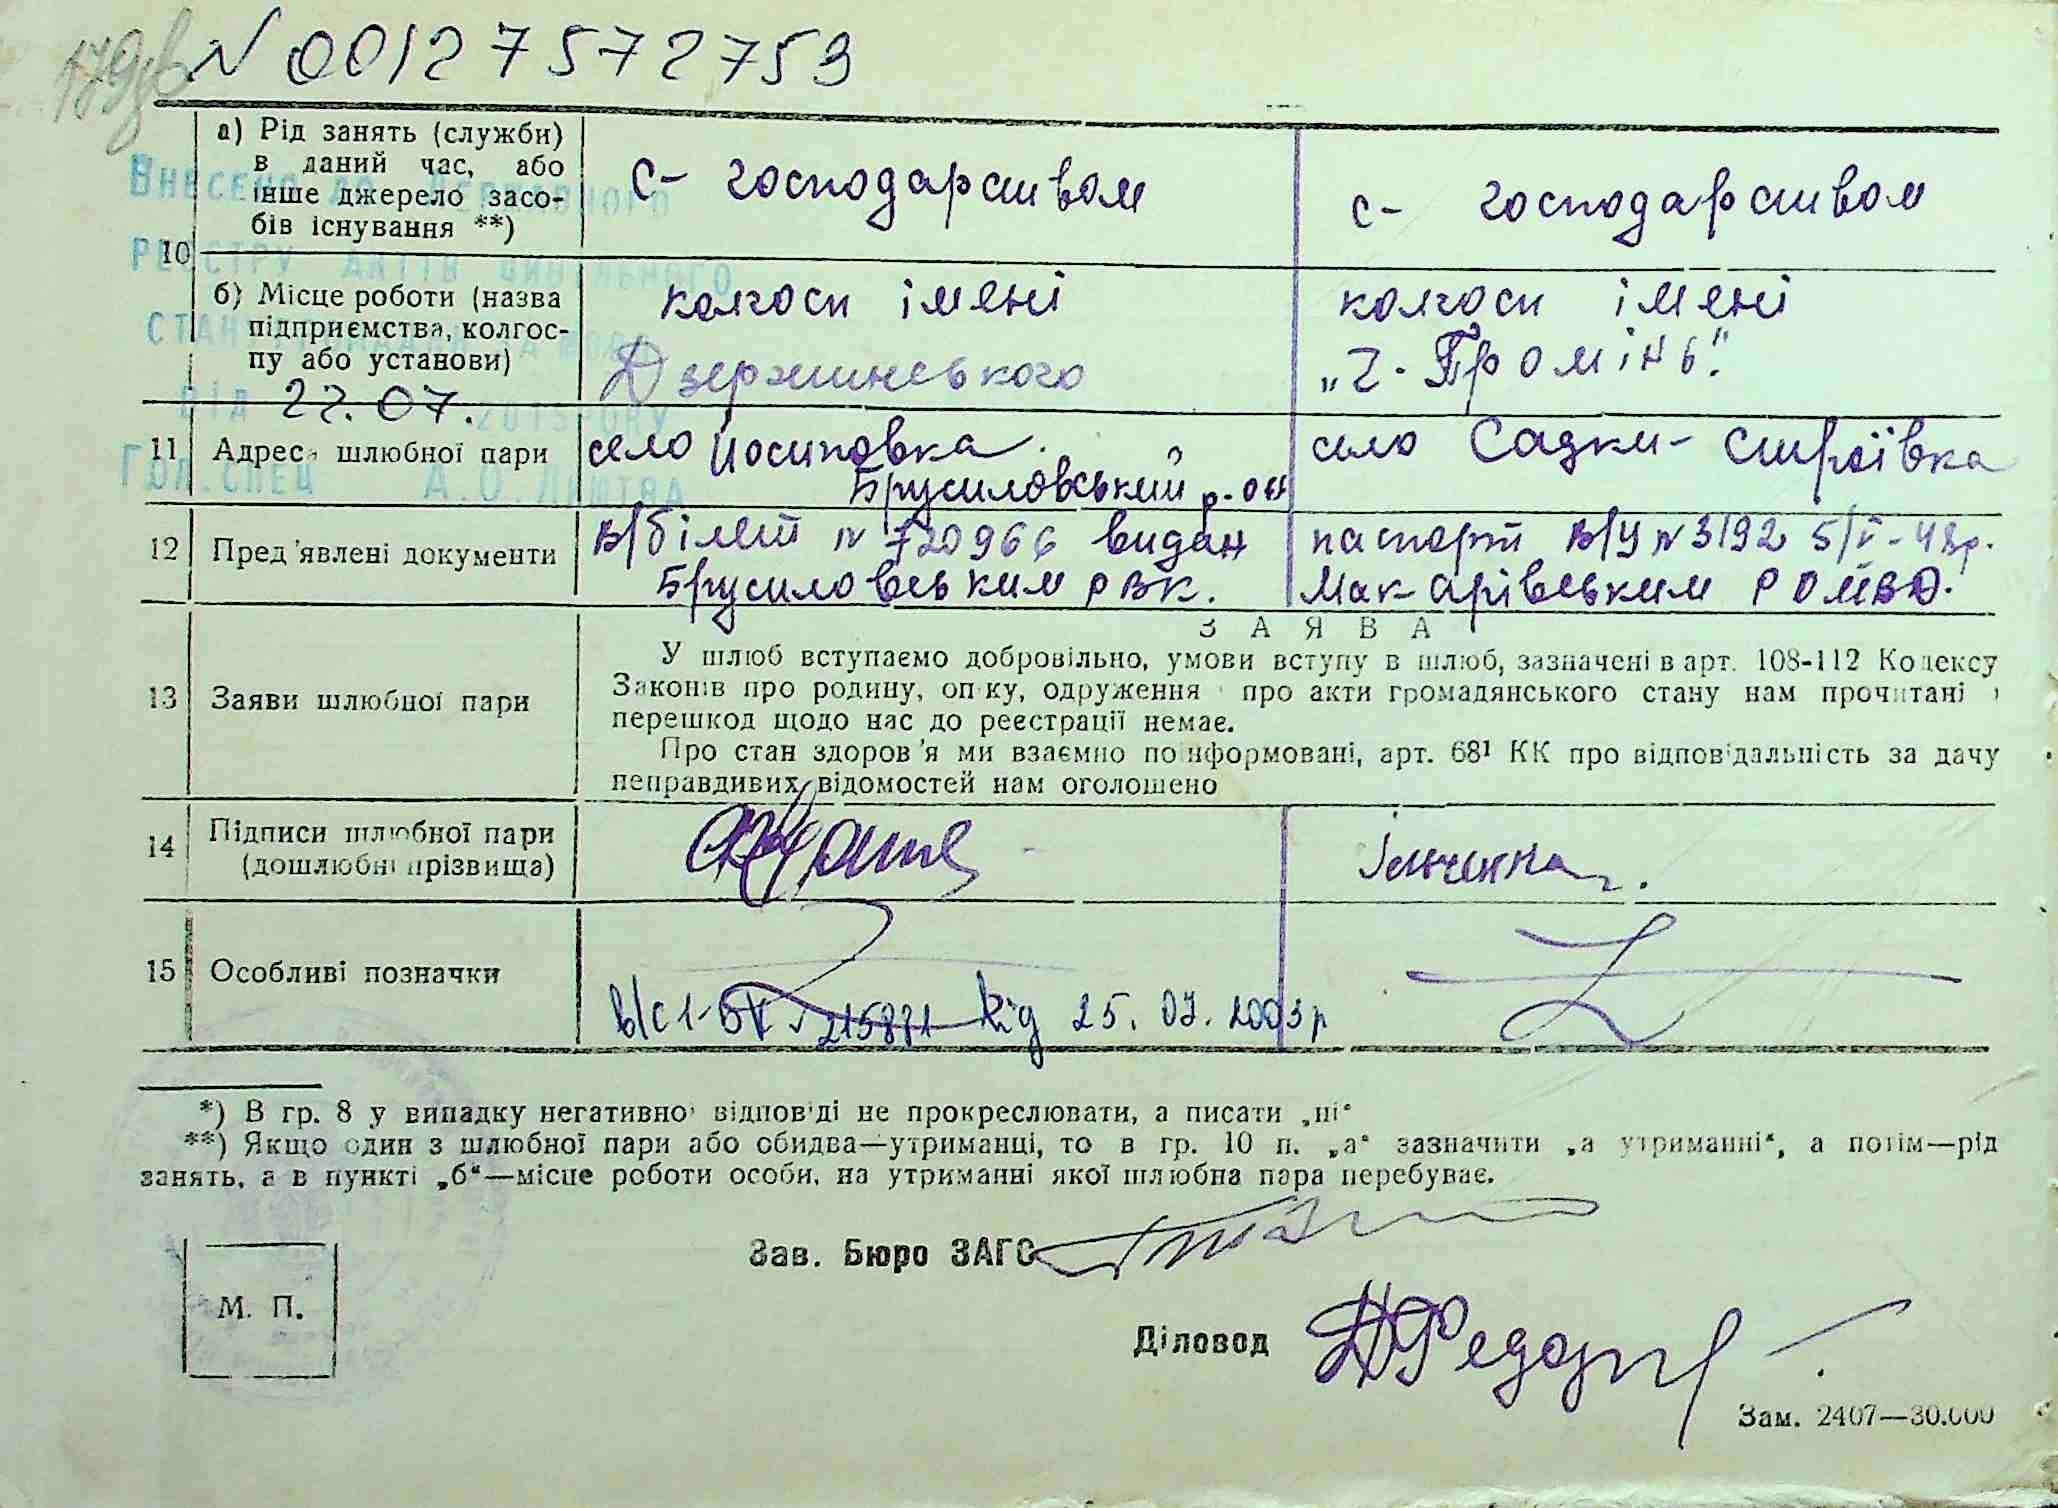 N 00127572753
а) Рід занять (служби) в даний час, або інше джерело засобів існування **)
с- господарством
с- господарством
Внесено до Державного
реєстру актів цивільного
10
б) Місце роботи (назва підприємства, колгоспу або установи)
колгосп імені
Дзержинського
колгосп імені
„Ч. Промінь"
від 22.07.2015 року
Гол. спец А.О.
11 Адреса шлюбної пари
село Йосиповка
Брусиловський р-он
село Садки-Строївка
12 Пред'явлені документи
в/білет N 720966 видан
Брусиловським РВК.
паспорт N 3192 5/V-48р.
Макарівським РОМВД.
ЗАЯВА
13 Заяви шлюбної пари
У шлюб вступаємо добровільно, умови вступу в шлюб, зазначені в арт. 108-112 Кодексу
Законів про родину, опіку, одруження і про акти громадянського стану нам прочитані і
перешкод щодо нас до реєстрації немає.
Про стан здоров'я ми взаємно поінформовані, арт. 68¹ КК про відповідальність за дачу
неправдивих відомостей нам оголошено
14 Підписи шлюбної пари
(дошлюбні прізвища)
15 Особливі позначки
215871 від 25.07.2003р
*) В гр. 8 у випадку негативної відповіді не прокреслювати, а писати „ні"
**) Якщо один з шлюбної пари або обидва—утриманці, то в гр. 10 п. „а" зазначити „а утриманні", а потім—рід
занять, а в пункті „б"—місце роботи особи, на утриманні якої шлюбна пара перебуває.
Зав. Бюро ЗАГС
М. П.
Діловод
Зам. 2407—30.000